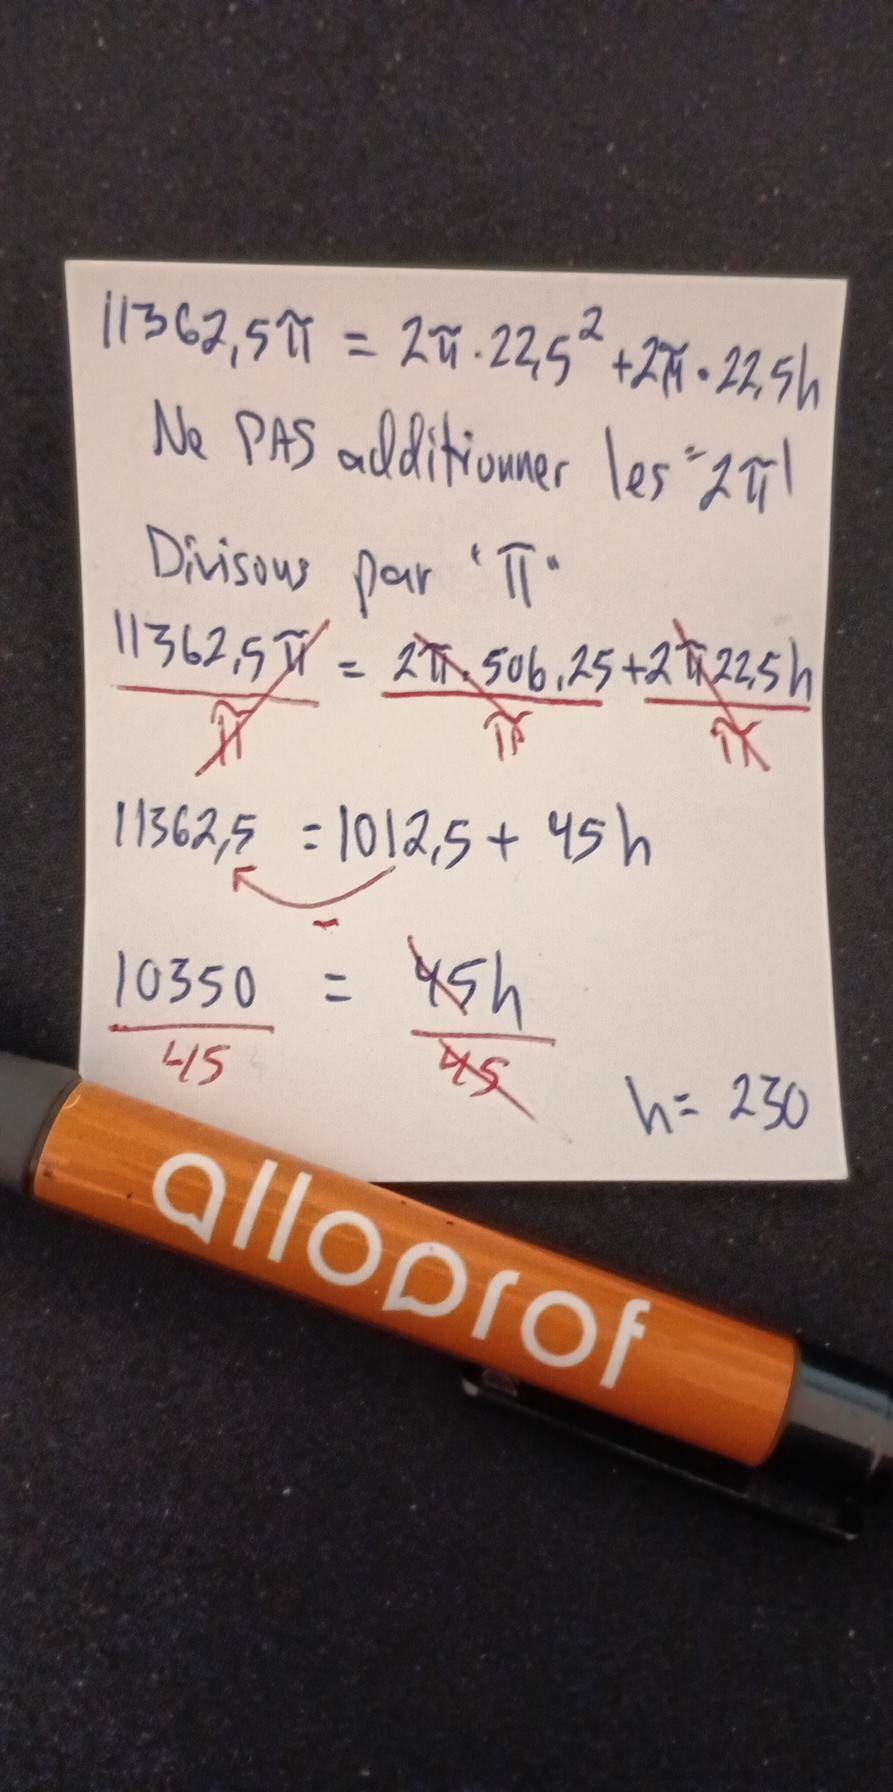 11362,5π = 2π · 22,5² + 2π · 22,5h
Ne PAS additionner les "2π"
Divisons par "π"
11362,5π = 2π · 506,25 + 2π 22,5h
π π π
11362,5 = 1012,5 + 45h
-
10350 = 45h
45 45
h = 230
alloprof